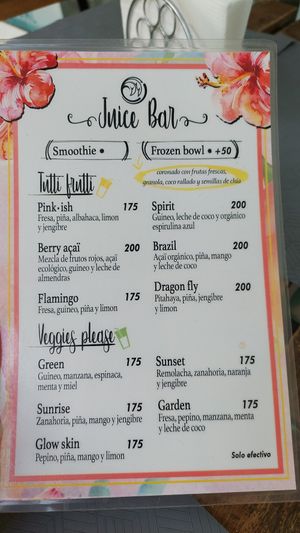 Juice Bar
Smoothie •
Frozen bowl • +50
coronado con frutas frescas,
granola, coco rallado y semillas de chia
Tutti frutti
Pink-ish 175
Fresa, piña, albahaca, limon
y jengibre
Spirit 200
Guineo, leche de coco y orgánico
espirulina azul
Berry açaï 200
Mezcla de frutos rojos, açaï
ecológico, guineo y leche de
almendras
Brazil 200
Açaï orgánico, piña, mango
y leche de coco
Flamingo 175
Fresa, guineo, piña y limon
Dragon fly 200
Pitahaya, piña, jengibre
y limon
Veggies please
Green 175
Guineo, manzana, espinaca,
menta y miel
Sunset 175
Remolacha, zanahoria, naranja
y jengibre
Sunrise 175
Zanahoria, piña, mango y jengibre
Garden 175
Fresa, pepino, manzana, menta
y leche de coco
Glow skin 175
Pepino, piña, mango y limon
Solo efectivo